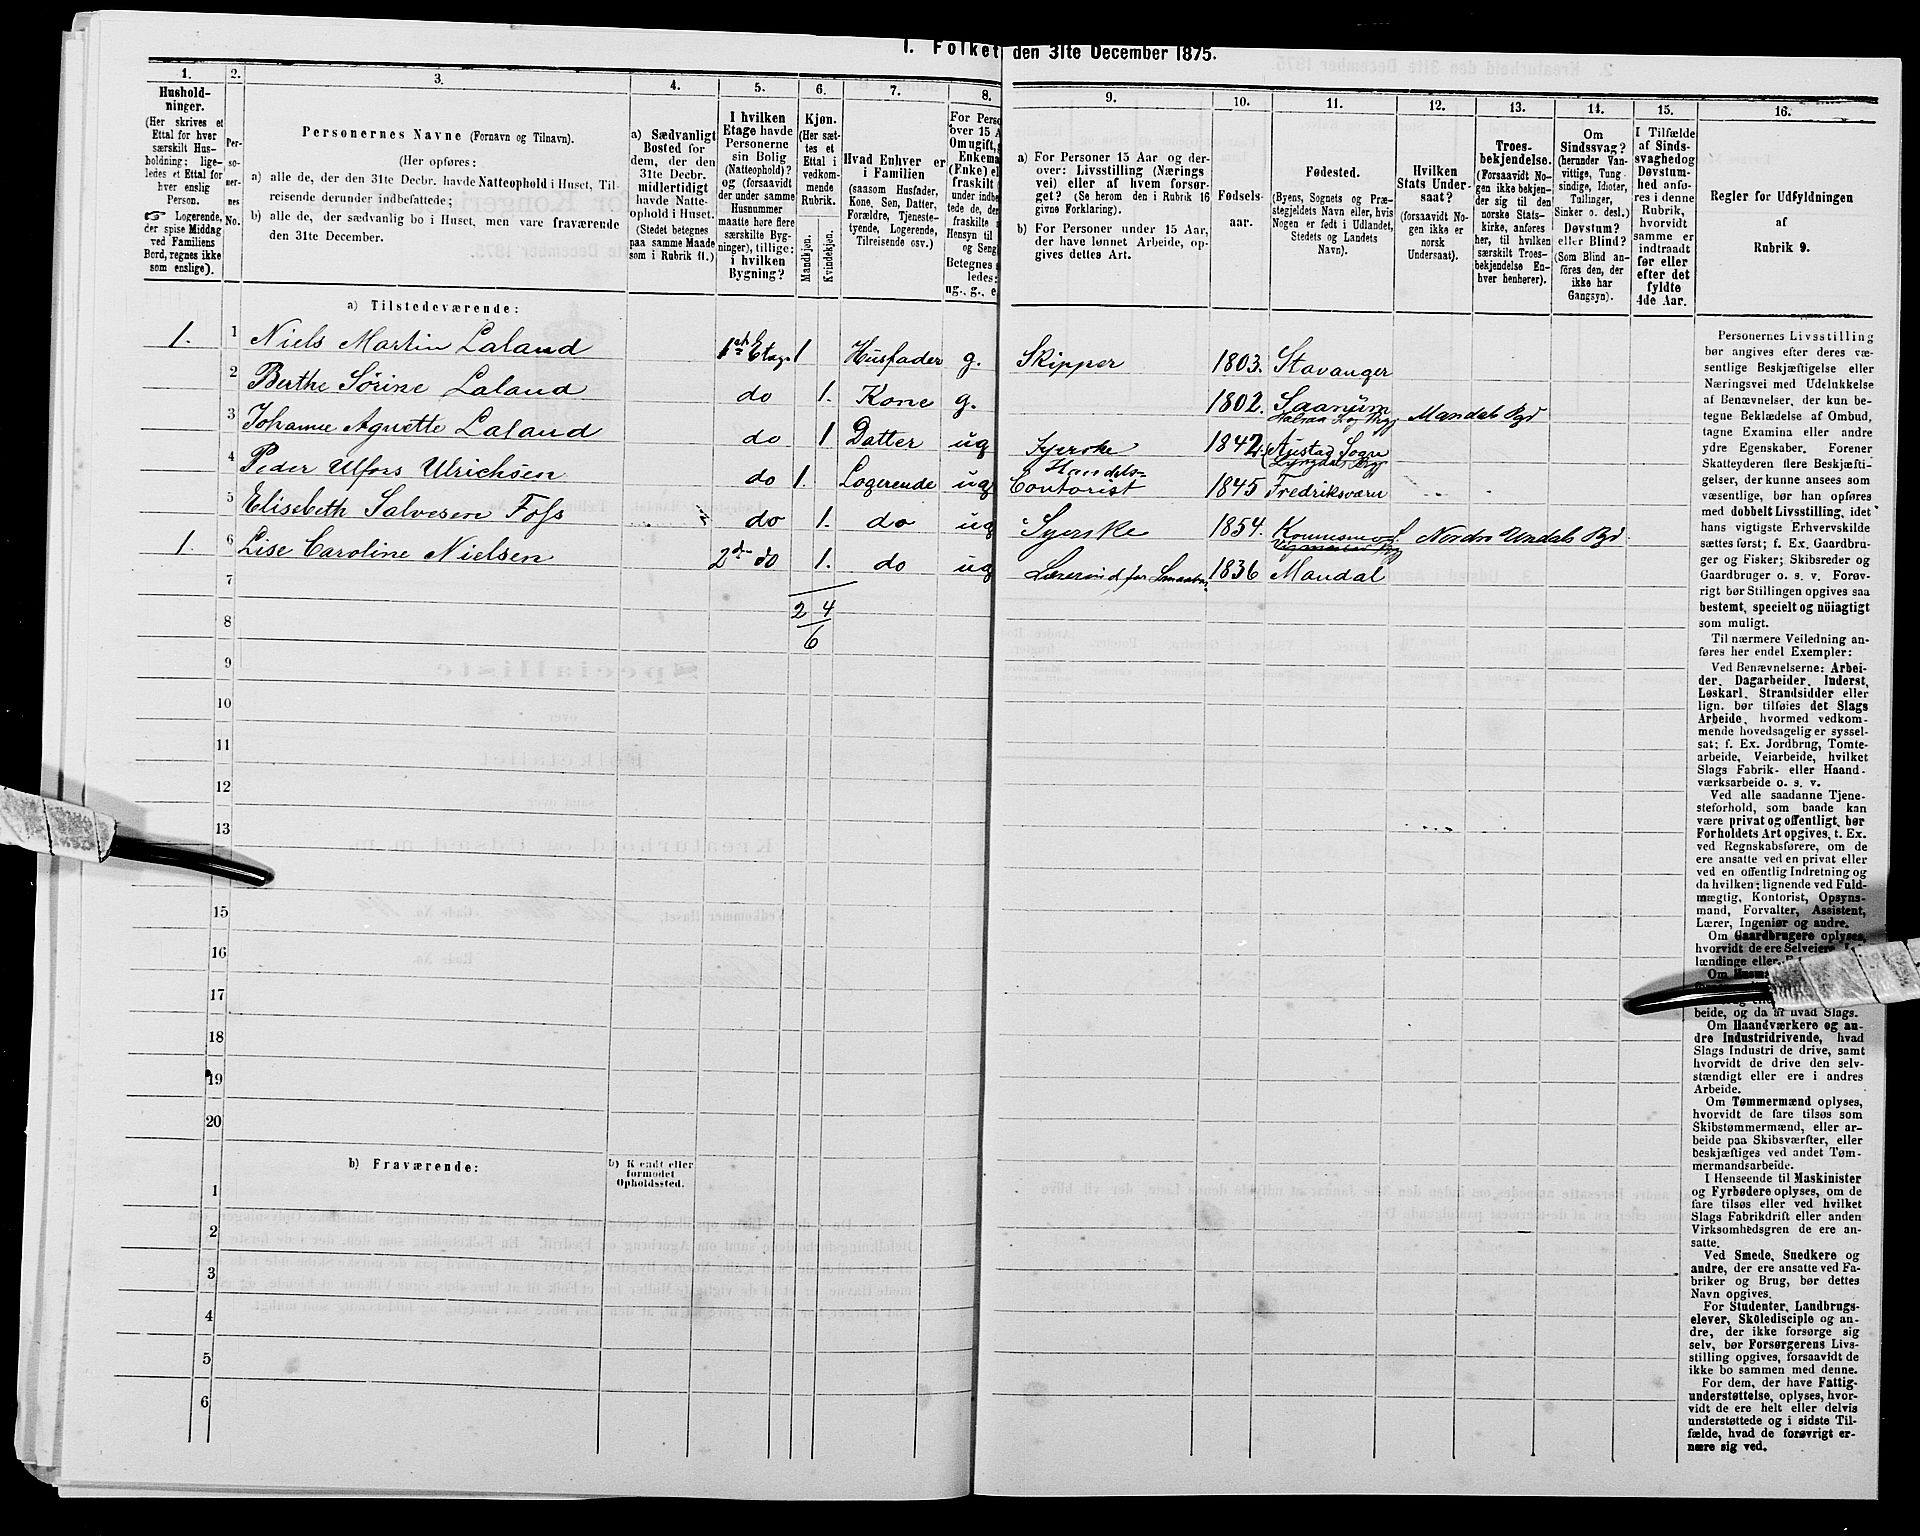 1. Folket den 31te December 1875.
1. 2. 3. 4. 5. 6. 7. 8. 9. 10. 11. 12. 13. 14. 15. 16.
Hushold-
ninger.
(Her skrives et
Ettal for hver
særskilt Hus-
holdning; lige-
ledes et Ettal for
hver enslig
Person.
Logerende,
der spise Middag
ved Familiens
Bord, regnes ikke
som enslige).
Per-
so-
ner-
nes
No.
Personernes Navne (Fornavn og Tilnavn).
(Her opføres:
a) alle de, der den 31te Decbr. havde Natteophold i Huset, Til-
reisende derunder indbefattede;
b) alle de, der sædvanlig bo i Huset, men vare fraværende
den 31te December.
a) Sædvanligt
Bosted for
dem, der den
31te Decbr.
midlertidigt
havde Natte-
ophold i Huset.
(Stedet betegnes
paa samme Maade
som i Rubrik 11.)
I hvilken
Etage havde
Personerne
sin Bolig
(Natteophold)?
og (forsaavidt
der under samme
Husnummer
maatte høre flere
særskilte Byg-
ninger), tillige:
i hvilken
Bygning?
Kjøn.
(Her sæt-
tes et
Ettal i
vedkom-
mende
Rubrik.
Mandkjøn.
Kvindekjøn.
Hvad Enhver er
i Familien
(saasom Husfader,
Kone, Søn, Datter,
Forældre, Tjeneste-
tyende, Logerende,
Tilreisende osv.)
For Perso
over 15 A
Om ugift,
Enkema
(Enke) el
fraskilt
under indbe
tede de, der
fraskilte
Hensyn til
og Seng
Betegnes s
ledes:
ug., g., e
a) For Personer 15 Aar og der-
over: Livsstilling (Nærings
vei) eller af hvem forsør-
get? (Se herom den i Rubrik 16
givne Forklaring).
b) For Personer under 15 Aar,
der have lønnet Arbeide, op-
gives dettes Art.
Fødsels-
aar.
Fødested.
(Byens, Sognets og Præ-
stegjeldets Navn eller, hvis
Nogen er født i Udlandet,
Stedets og Landets
Navn).
Hvilken
Stats Under-
saat?
(forsaavidt No-
gen ikke er
norsk
Undersaat).
Troes-
bekjendelse.
(Forsaavidt No-
gen ikke bekjen-
der sig til den
norske Stats-
kirke, anføres
her, til hvilken
særskilt Troes-
bekjendelse En-
hver henhører).
Om
Sindssvag?
(herunder Van-
vittige, Tung
sindige, Idioter,
Tullinger,
Sinker o. desl.)
Døvstum?
eller Blind?
(Som Blind an-
føres den, der
ikke har
Gangsyn).
I Tilfælde
af Sinds-
svaghed og
Døvstum-
hed anfø-
res i denne
Rubrik,
hvorvidt
samme er
indtraadt
før eller
efter det
fyldte
4de Aar.
Regler for Udfyldningen
af
Rubrik 9.
a) Tilstedeværende:
1. 1 Niels Martin Laland 1ste Etage 1 Husfader g. Skipper 1803. Stavanger
2 Berthe Sørine Laland do 1. Kone g. 1802. Saanum
Halsaa S og Pgj Mandals Pgj
3 Johanne Agnette Laland do 1 Datter ug Syerske 1842. Austad Sogn
Lyngdals Pgj
4 Peder Ulfors Ulrichsen do 1. Logerende ug Handels-
Contorist 1845 Fredriksværn
5 Elisebeth Salvesen Foss do 1. do ug Syerske 1854. Konnesmo S Nordre Undals Pgj.
1. 6 Lise Caroline Nielsen 2den do 1. do ug Lærerinde for Smaabørn 1836 Mandal
7
2 4
8
6
9
10
11
12
13
15
16
17
18
19
20
b) Fraværende:
b) Kendt eller
formodet
Opholdssted.
1
2
3
4
5
6
Personernes Livsstilling
bør angives efter deres væ-
sentlige Beskjæftigelse eller
Næringsvei med Udelukkelse
af Benævnelser, der kun be-
tegne Beklædelse af Ombud,
tagne Examina eller andre
ydre Egenskaber. Forener
Skatteyderen flere Beskjæfti-
gelser, der kunne ansees som
væsentlige, bør han opføres
med dobbelt Livsstilling, idet
hans vigtigste Erhvervskilde
sættes først; f. Ex. Gaardbru-
ger og Fisker; Skibsreder og
Gaardbruger o. s. v. Forøv-
rigt bør Stillingen opgives saa
bestemt, specielt og nöiagtigt
som muligt.
Til nærmere Veiledning an-
føres her endel Exempler:
Ved Benævnelserne: Arbei-
der, Dagarbeider, Inderst,
Løskarl, Strandsidder eller
lign. bør tilføies det Slags
Arbeide, hvormed vedkom-
mende hovedsagelig er syssel-
sat; f. Ex. Jordbrug, Tomte-
arbeide, Veiarbeide, hvilket
Slags Fabrik- eller Haand-
værksarbeide o. s. v.
Ved alle saadanne Tjene-
steforhold, som baade kan
være privat og offentligt, bør
Forholdets Art opgives, t. Ex.
ved Regnskabsførere, om de
ere ansatte ved en privat eller
ved en offentlig Indretning og
da hvilken; lignende ved Fuld-
mægtig, Kontorist, Opsyns-
mand, Forvalter, Assistent,
Lærer, Ingeniør og andre.
Om Gaardbrugere oplyses,
hvorvidt de ere Selveiere,
lændinge eller
Om
beide, og da af hvad Slags.
Om Haandværkere og an-
dre Industridrivende, hvad
Slags Industri de drive, samt
hvorvidt de drive den selv-
stændigt eller ere i andres
Arbeide.
Om Tømmermænd oplyses,
hvorvidt de fare tilsøs som
Skibstømmermænd, eller ar-
beide paa Skibsværfter, eller
beskjæftiges ved andet Tøm-
mermandsarbeide.
I Henseende til Maskinister
og Fyrbødere oplyses, om de
fare tilsøs eller ved hvilket
Slags Fabrikdrift eller anden
Virksomhedsgren de ere an-
satte.
Ved Smede, Snedkere og
andre, der ere ansatte ved Fa-
briker og Brug, bør dettes
Navn opgives.
For Studenter, Landbrugs-
elever, Skoledisciple og an-
dre, der ikke forsørge sig
selv, bør Forsørgerens Livs-
stilling opgives, forsaavidt de
ikke bo sammen med denne.
For dem, der have Fattig-
understøttelse, oplyses, hvor-
vidt de ere helt eller delvis
understøttede og i sidste Til-
fælde, hvad de forøvrigt er-
nære sig ved.